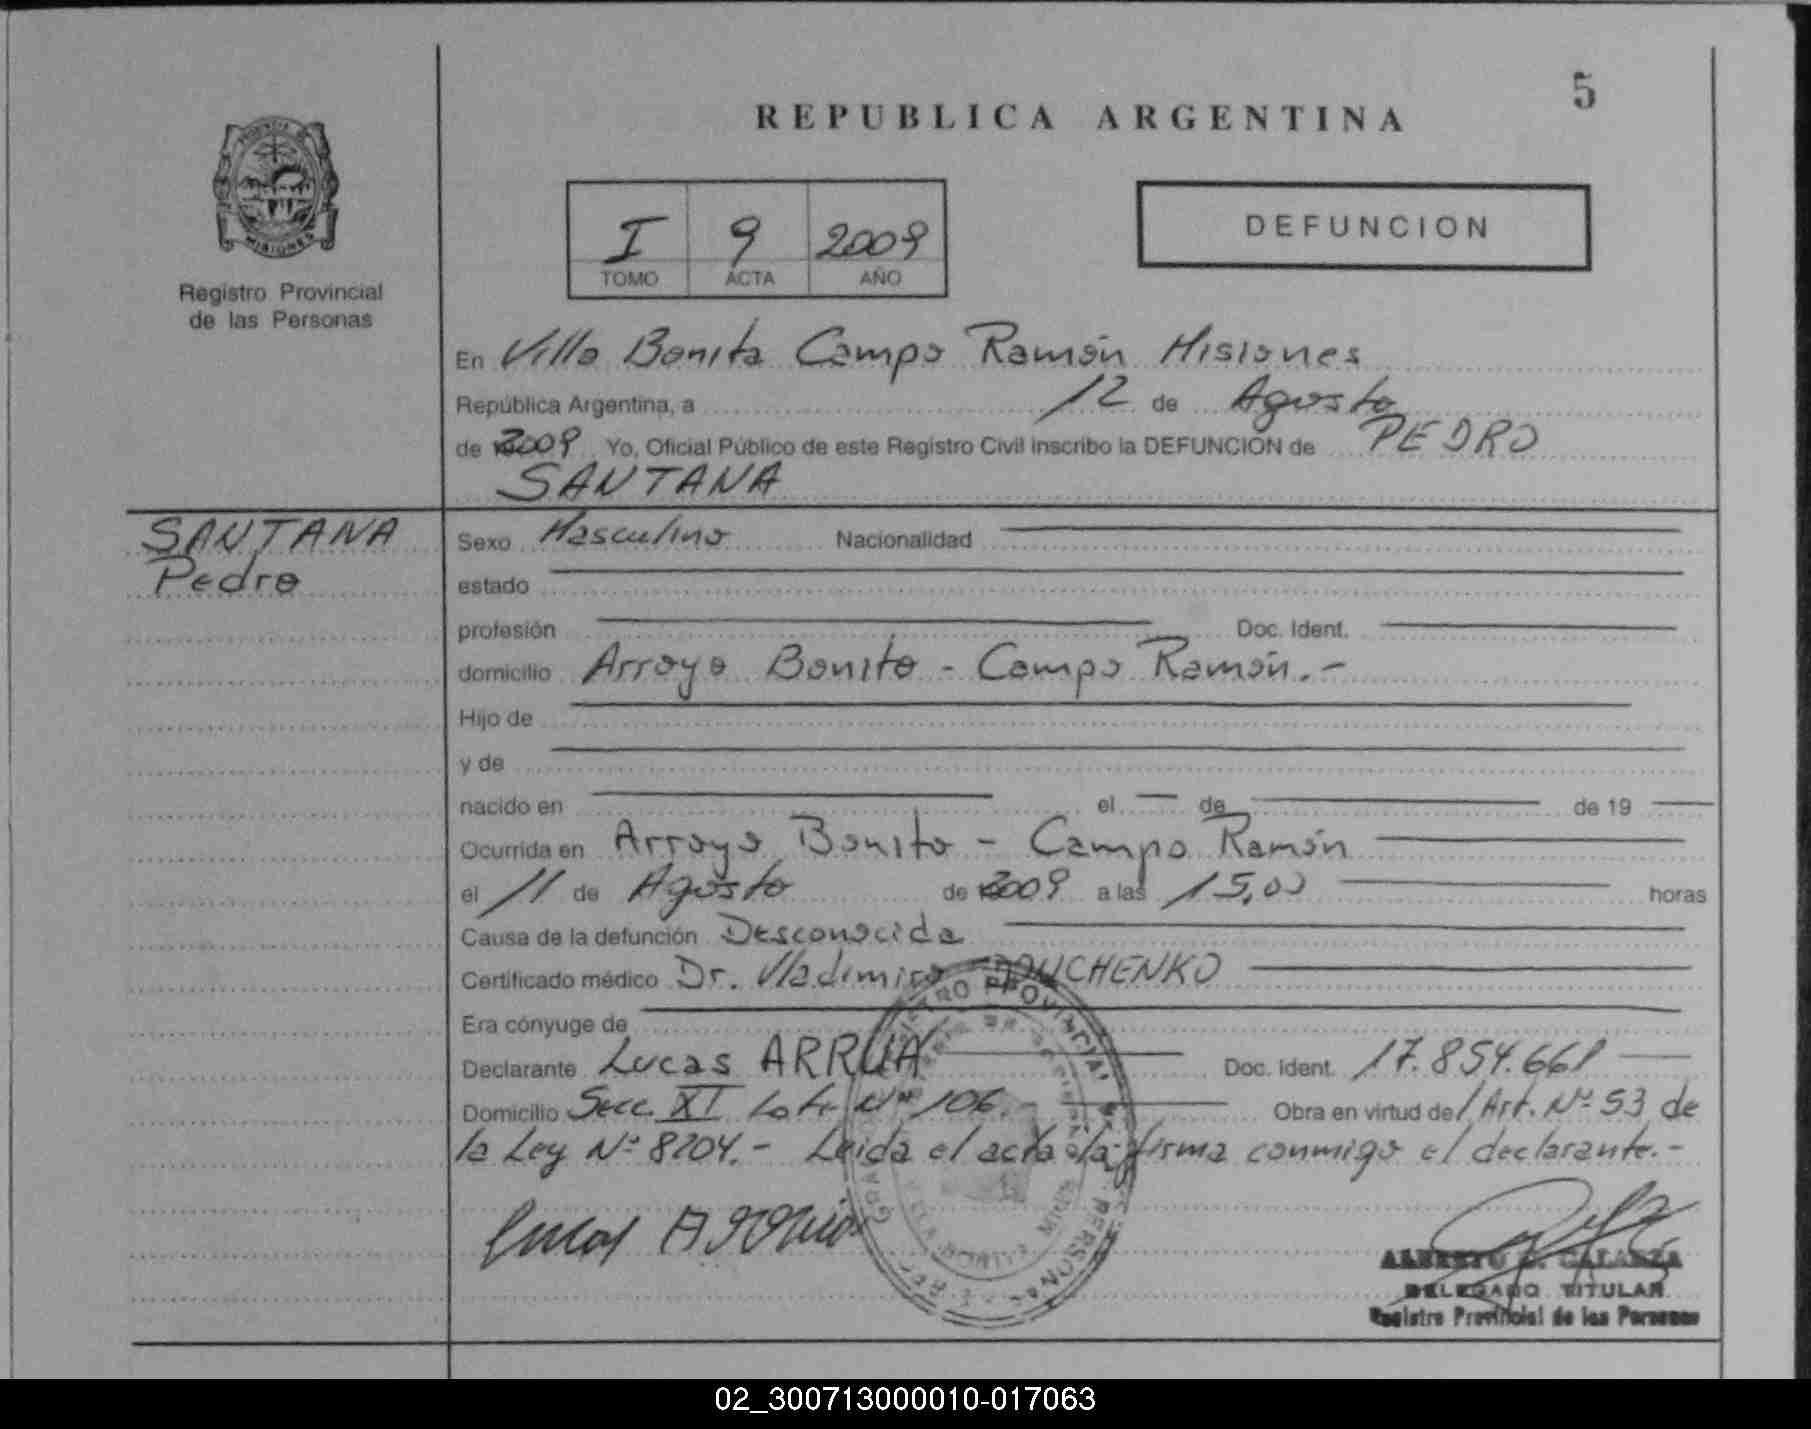 5
REPUBLICA ARGENTINA
PROVINCIA DE
MISIONES
I 9 2009
TOMO ACTA AÑO
DEFUNCION
Registro Provincial
de las Personas
En Villa Bonita Campo Ramón Misiones
República Argentina, a 12 de Agosto
de 2009 Yo, Oficial Público de este Registro Civil inscribo la DEFUNCION de PEDRO
SANTANA
SANTANA
Pedro
Sexo Masculino Nacionalidad
estado
profesión Doc. Ident.
domicilio Arroyo Bonito - Campo Ramón.-
Hijo de
y de
nacido en el de de 19
Ocurrida en Arroyo Bonito - Campo Ramón
el 11 de Agosto de 2009 a las 15,00 horas
Causa de la defunción Desconocida
Certificado médico Dr. Vladimiro
Era cónyuge de
Declarante Lucas ARRUA Doc. Ident. 17.854.661
Domicilio Secc. XI Lote Nº 106.- Obra en virtud del Art. Nº 53 de
la Ley Nº 8204.- Leida el acta la firma conmigo el declarante.-
ALBERTO CALARZA
DELEGADO TITULAR
Registro Provincial de las Personas
02_300713000010-017063